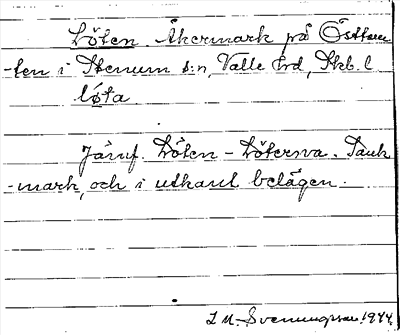 Löten. Åkermark på Östtom-
-ten i Stenum s:n, Valle hrd, Skb. l.
löta.
Jämf. Löten - Löterna.
-mark, och i utkant belägen.
I. M. Svenungsson 1944.